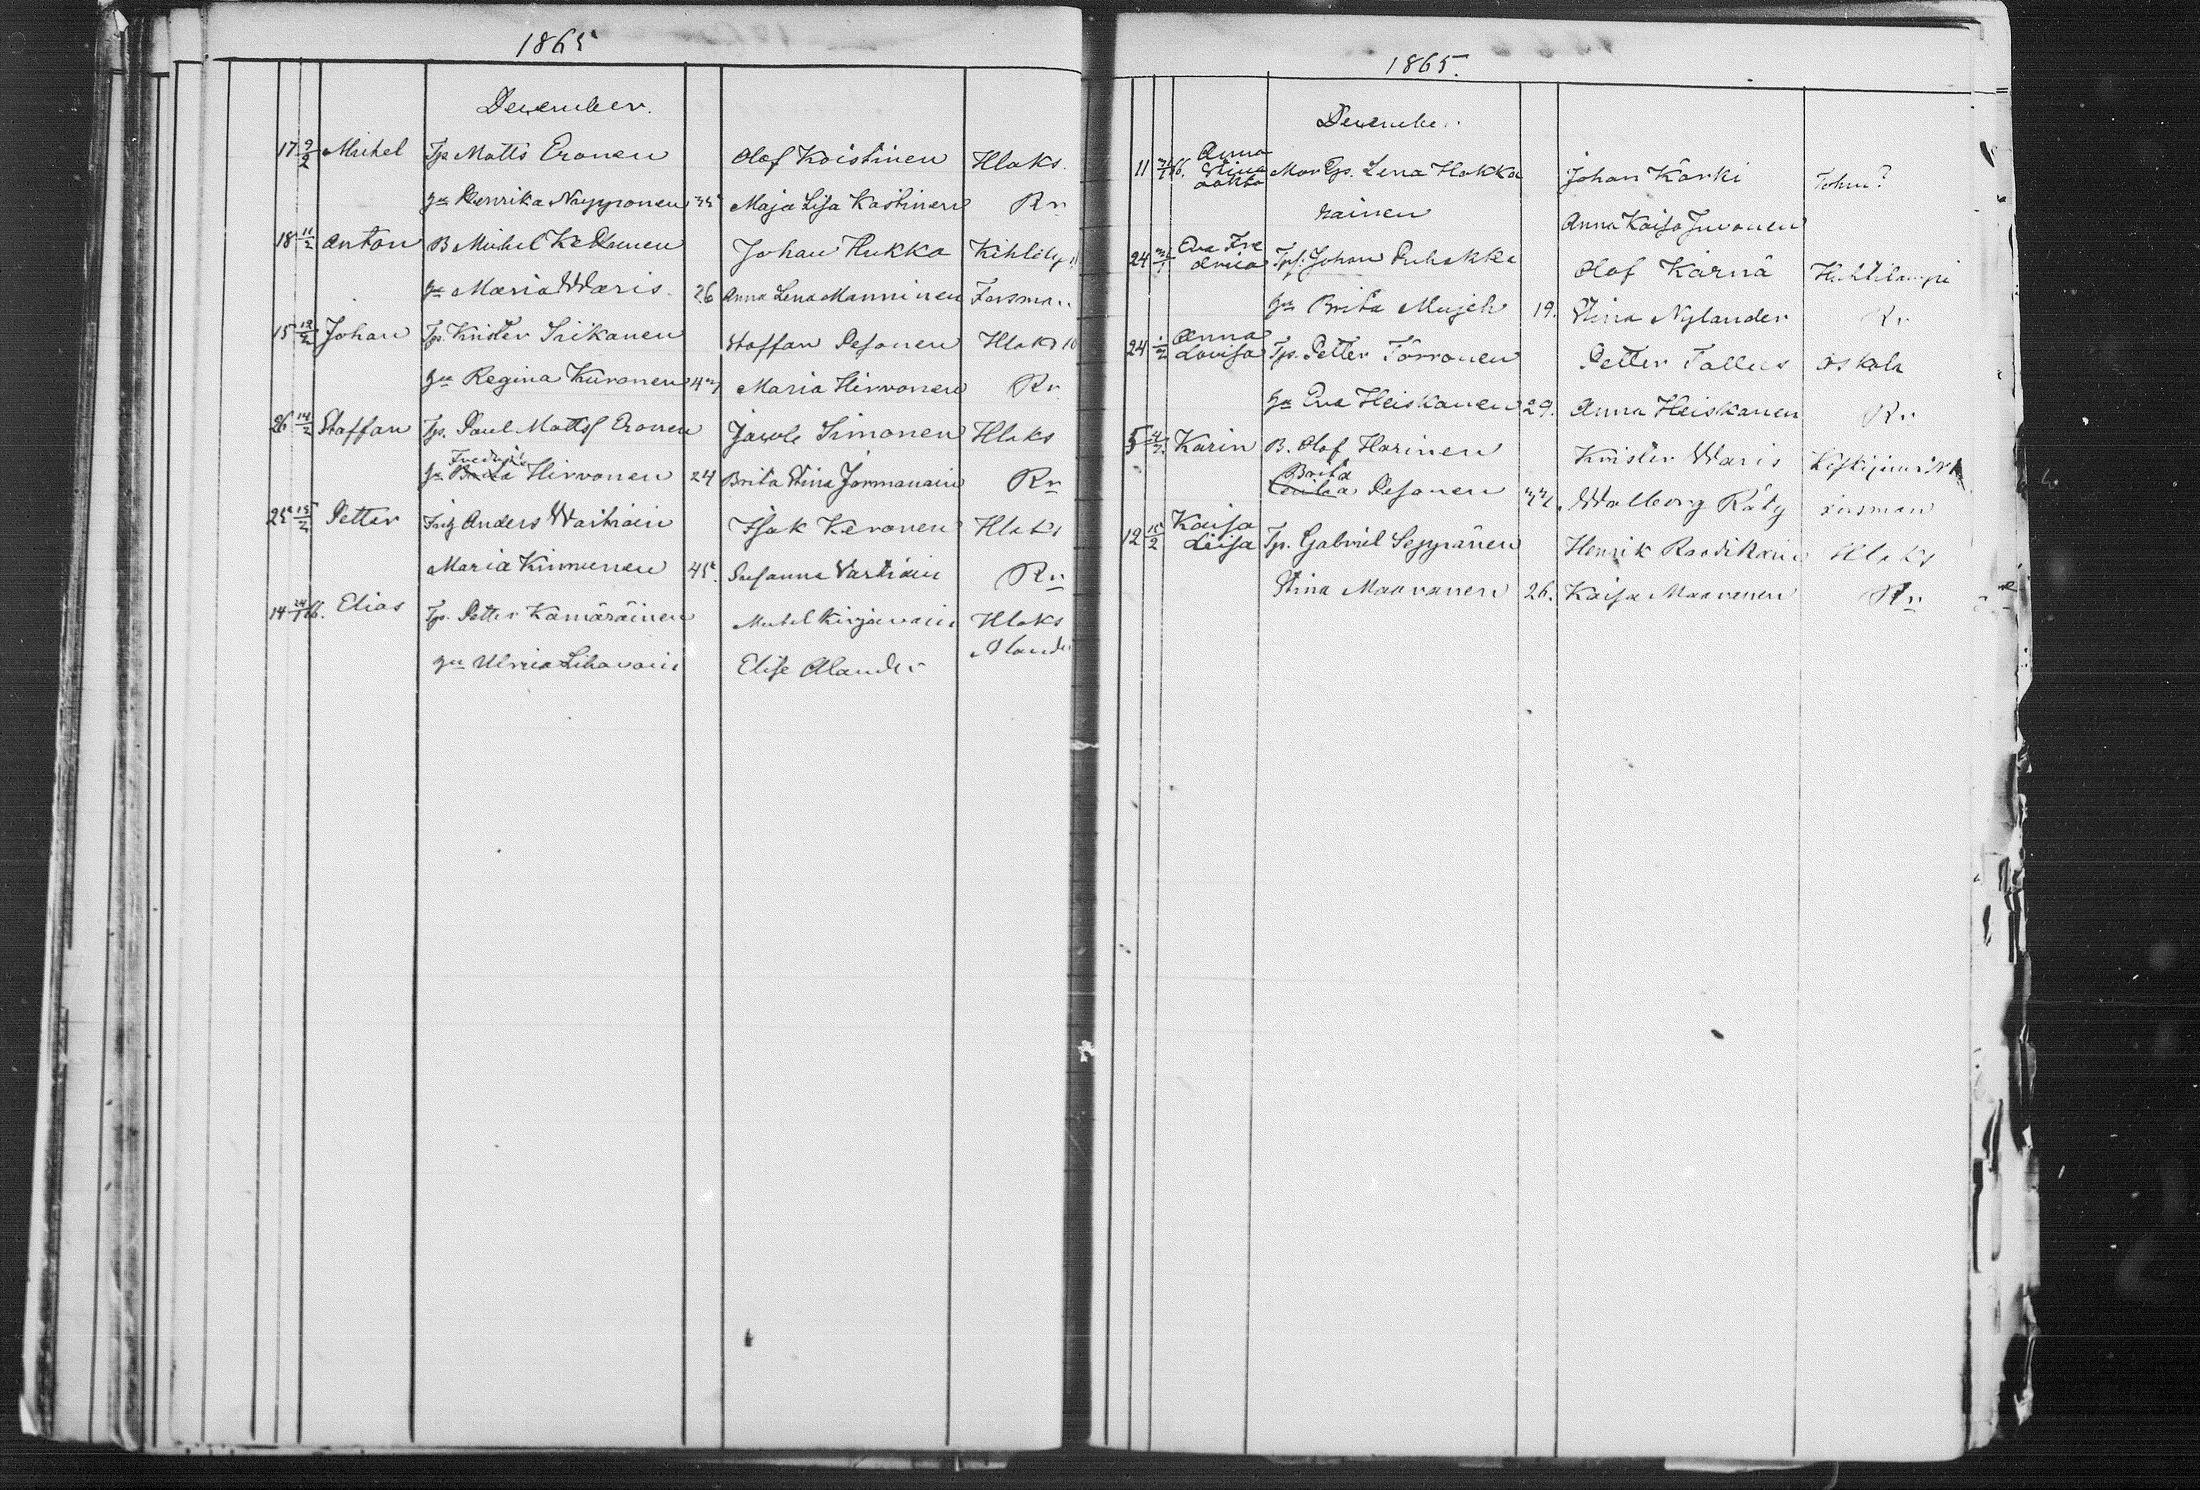 1865
December.
17 9/2 Michel Tp Matts Eronen Olof Koistinen Hlaks.
hu Henrika Nappronen 35 Maja Lisa Kastinen Rr
18 11/2 Anton B Michel Kettunen Johan Hukka Kihlöky
hu Maria Waris. 26 Anna Lena Manninen Forsman
15 12/2 Johan Tp. Krister Siikanen Staffan Pesonen Hlaks 10
hu Regina Kuronen 43 Maria Hirvonen Rr
26 14/2 Staffan Tp. Paul Mattsf Eronen Jacob Simonen Hlaks
Fredrika
hu Hirvonen 24 Brita Stina Jormanain Rr
25 15/2 Petter Anders Wartiain Isak Keronen Hlaks
Maria Kinnunen 45. Susanna Vartiain Rr
14 24/1 66. Elias Tp. Petter Kämäräinen Michel Kinjavain Hlaks
hu Ulrica Lihavain Elise Alander Aland
1865.
December.
Anna
11 66. Stina Mor Tp. Lena Hakka Johan Kärki Tohm?
rainen Anna Kaisa Juvonen
Eva Fre
24 drica Tpf. Johan Puhakka Olof Kärnä Huhtilampi
hu Brita Mujeh 19. Stina Nylander Rr
Anna
24 1/2 Lovisa Tp. Petter Törronen Petter Tallus Oskola
hu Eva Heiskanen 29. Anna Heiskanen Rr
5 4/2 Karin B. Olof Harinen Krister Waris Keskijärvi
Brita
Pesonen 32. Walborg Räty
Kaisa
12 15/2 Lisa Tp. Gabriel Seppänen Henrik Raatikain Hlaks
Stina Maaranen 26. Kaisa Maaranen Rr